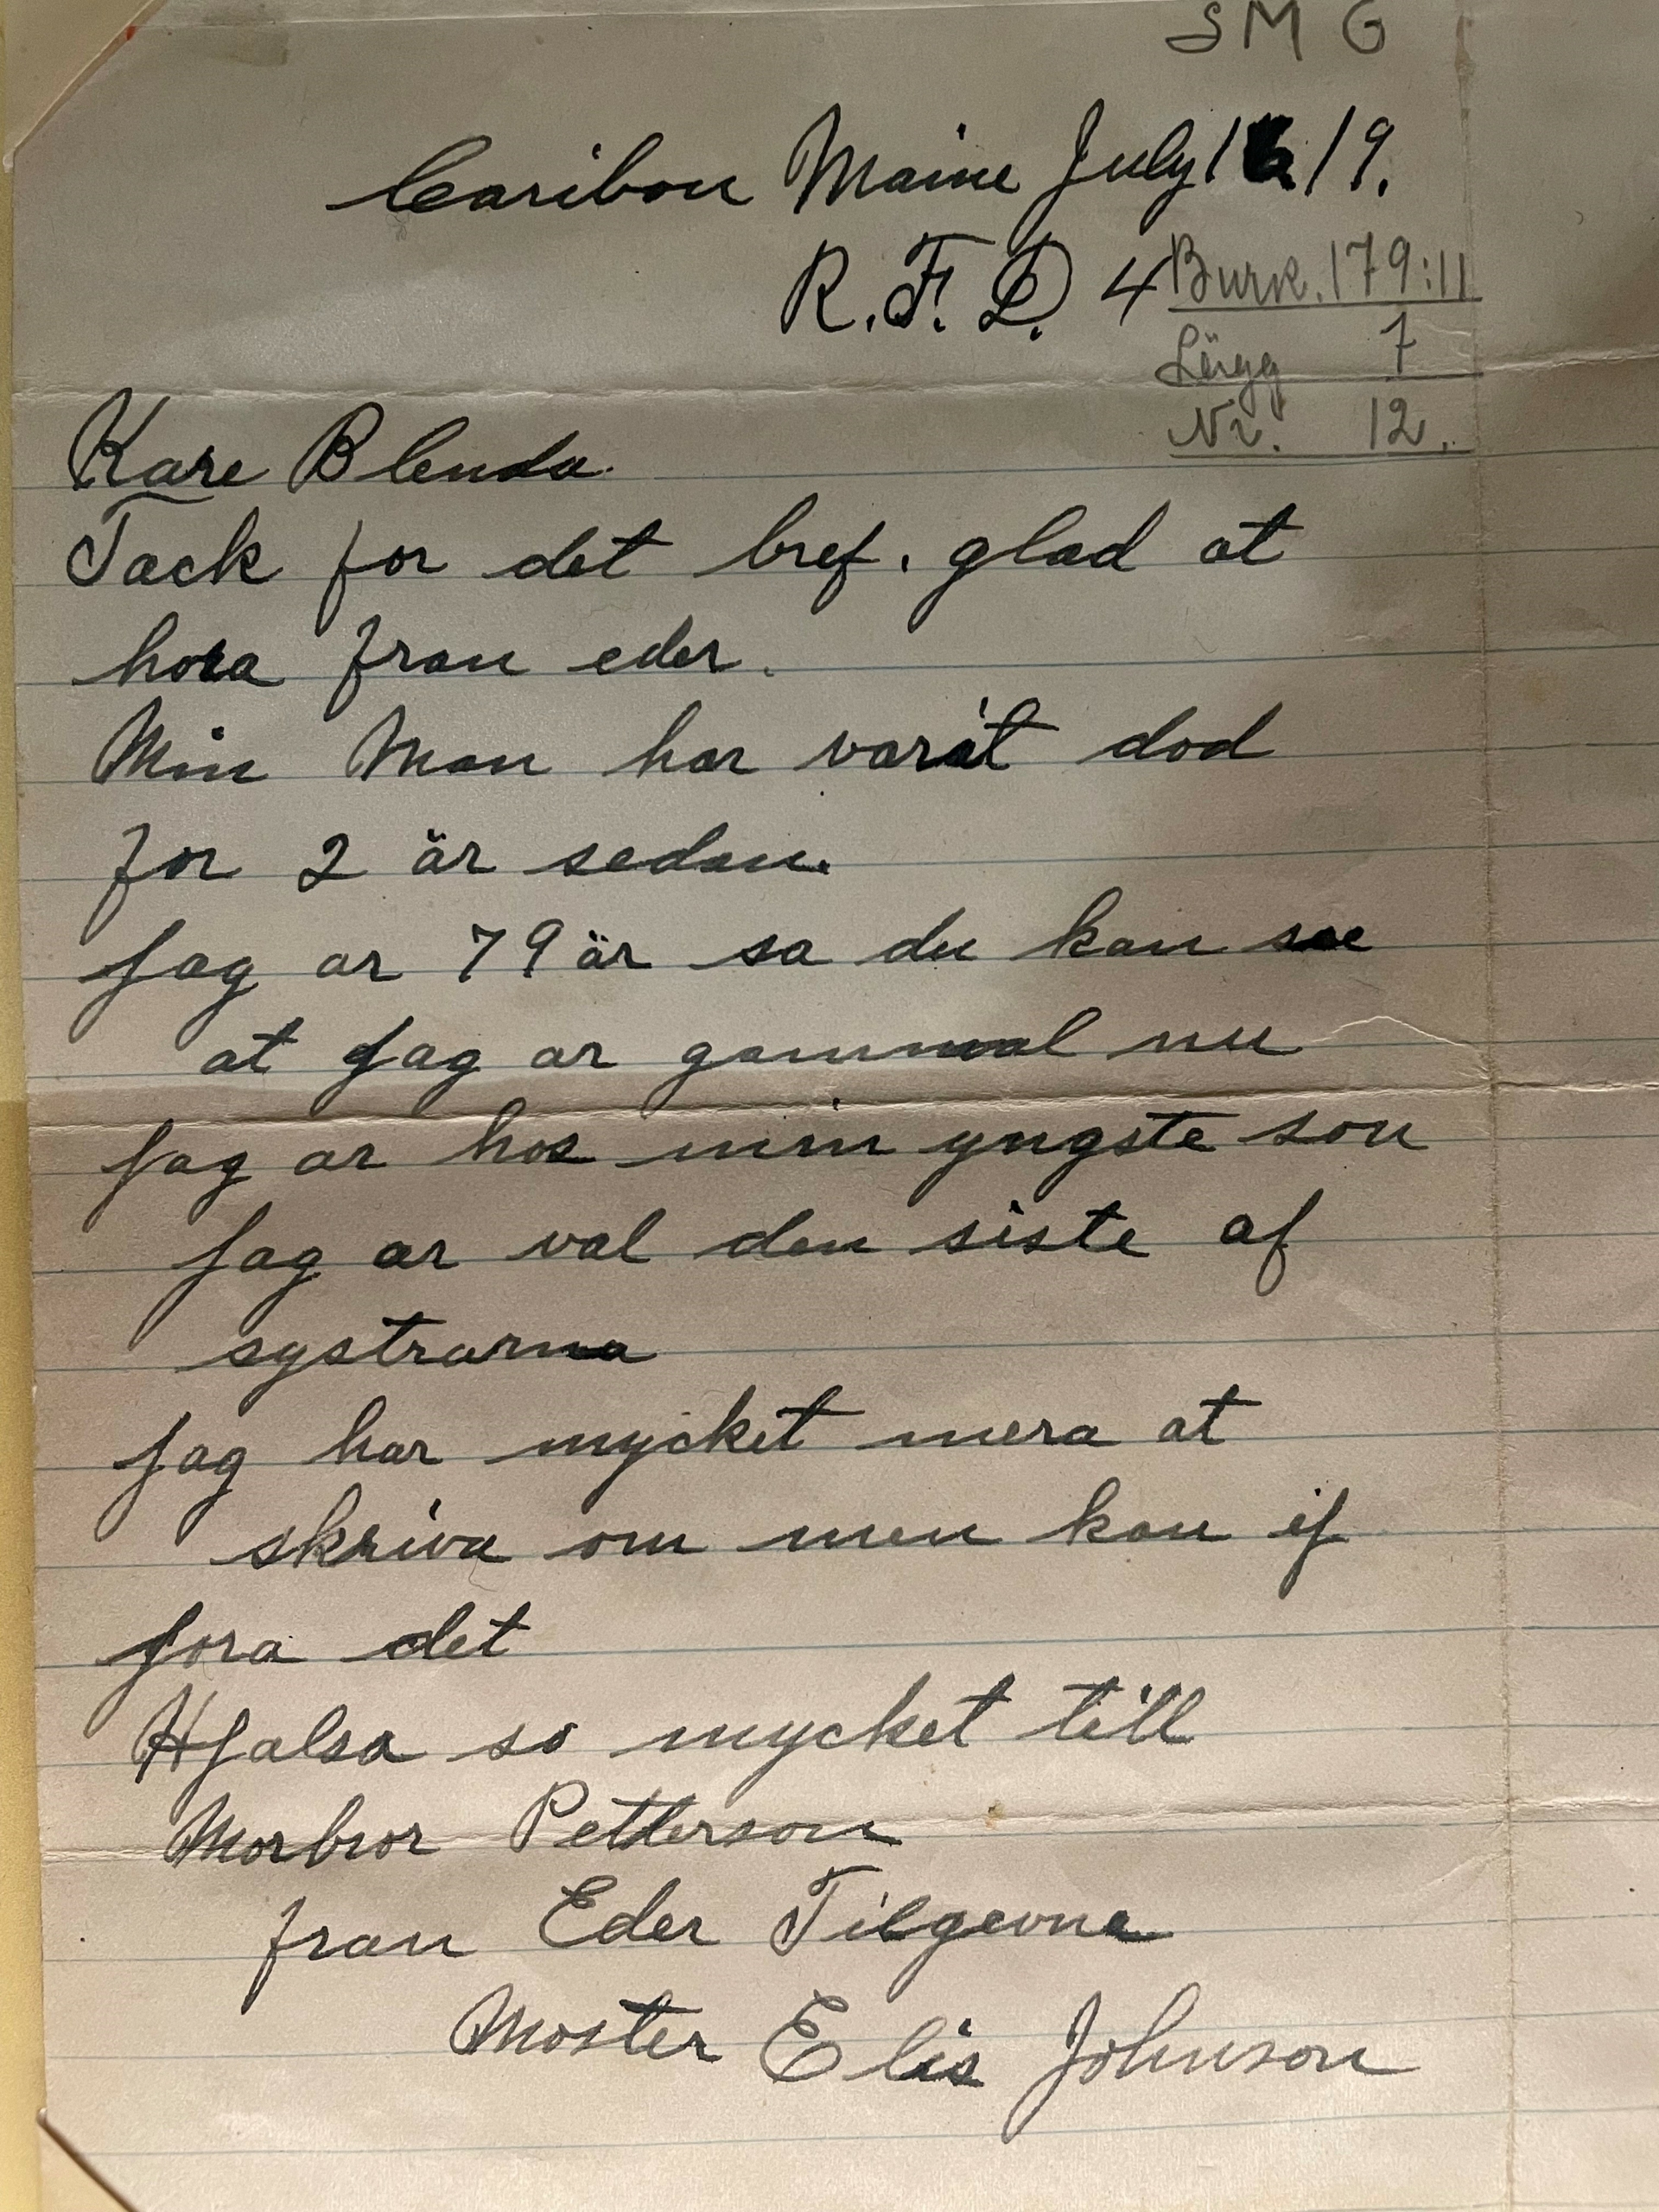 S M G
Caribou Maine July 16 19.
R. F. D. 4
Burk. 179:11
Lägg 7
Nr. 12.
Kare Blenda.
Tack for det bref. glad at
hora fran eder.
Min Man har varit dod
for 2 är sedan.
Jag ar 79 är sa du kan se
at Jag ar gammal nu
Jag ar hos min yngste son
Jag ar val den siste af
systrarna
Jag har mycket mera at
skriva om men kan ej
jora det
Hjalsa so mycket till
Morbror Petterson
fran Eder Tilgevne
Moster Elis Johnson